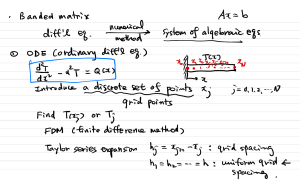 · Banded matrix
Ax = b
diff'l eq. numerical method → system of algebraic eqs
① ODE (ordinary diff'l eq.)
d²T/dx² - α²T = Q(x)
T(x)
x₀ x₁ x₂
x
Introduce a discrete set of points xⱼ j = 0, 1, 2, ... N
grid points
Find T(xⱼ) or Tⱼ
FDM (finite difference method)
Taylor series expansion hⱼ = xⱼ₊₁ - xⱼ : grid spacing
h₁ = h₂ = ... = h : uniform grid spacing